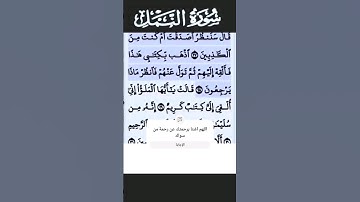 سُورَةُ النَّمْلِ
قَالَ سَنَنظُرُ أَصَدَقْتَ أَمْ كُنتَ مِنَ
ٱلْكَٰذِبِينَ ۝ ٱذْهَب بِّكِتَٰبِي هَٰذَا
فَأَلْقِهْ إِلَيْهِمْ ثُمَّ تَوَلَّ عَنْهُمْ فَٱنظُرْ مَاذَا
يَرْجِعُونَ ۝ قَالَتْ يَٰٓأَيُّهَا ٱلْمَلَؤُا۟ إِنِّىٓ
أُلْقِىَ إِلَىَّ كِتَٰبٌ كَرِيمٌ ۝ إِنَّهُۥ مِن
سُلَيْمَٰنَ
اللهم اغننا برحمتك عن رحمة من
سواك
ٱلرَّحِيمِ